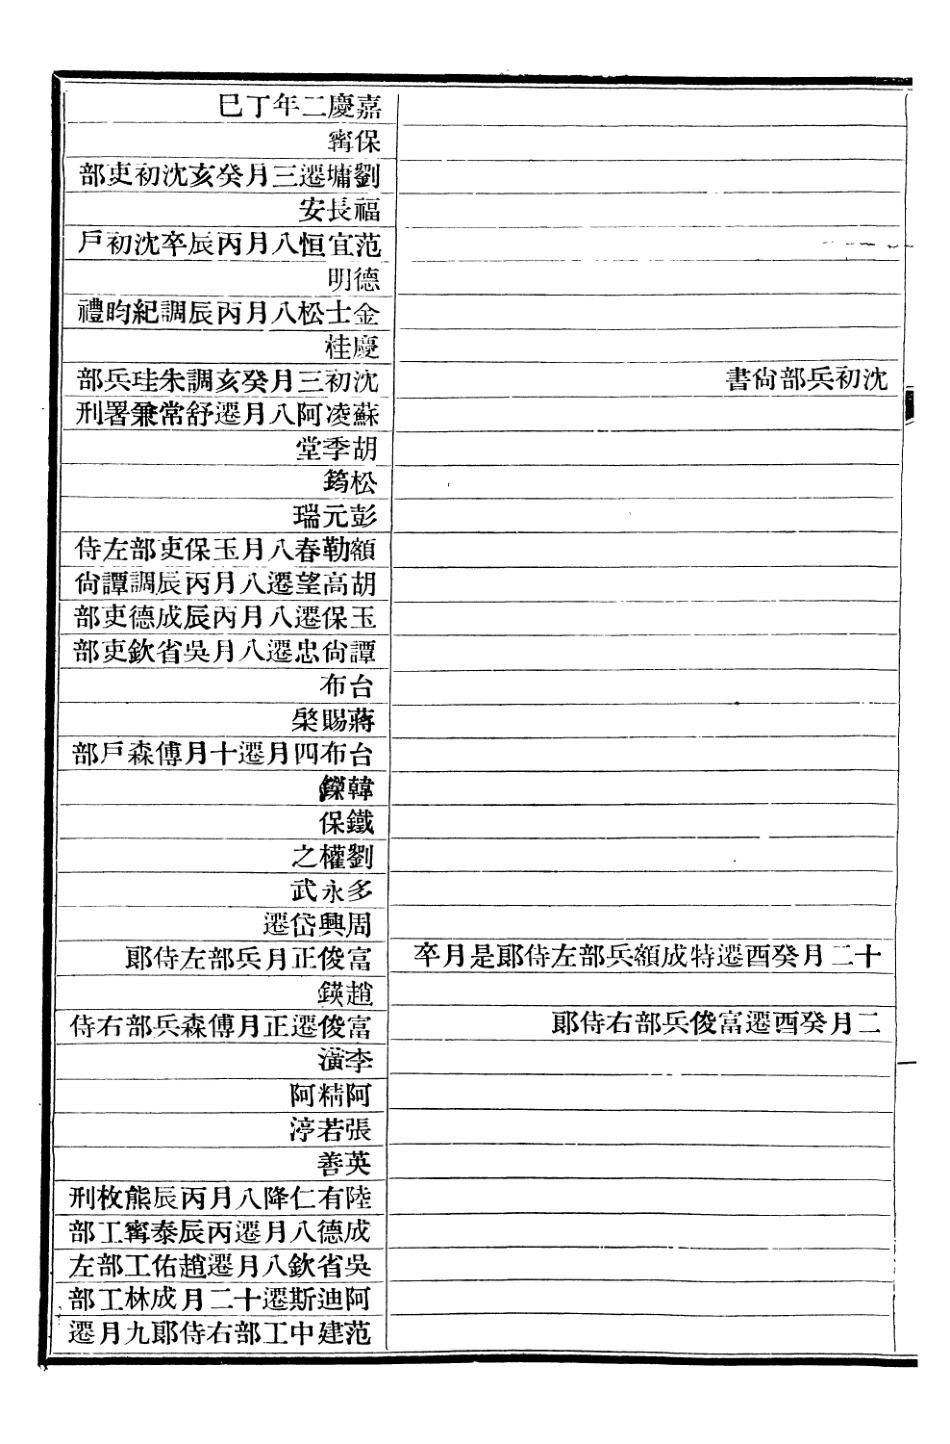 沈初兵部尙書
十二月癸酉遷特成額兵部左侍郞是月卒
二月癸酉遷富俊兵部右侍郞
嘉慶二年丁巳
保寗
劉墉遷三月癸亥沈初吏部
福長安
范宜恒八月丙辰卒沈初戶
德明
金士松八月丙辰調紀昀禮
慶桂
沈初三月癸亥調朱珪兵部
蘇凌阿八月遷舒常兼署刑
胡季堂
松筠
彭元瑞
額勒春八月玉保吏部左侍
胡高望遷八月丙辰調譚尙
玉保遷八月丙辰成德吏部
譚尙忠遷八月吳省欽吏部
台布
蔣賜棨
台布四月遷十月傅森戶部
韓鑅
鐵保
劉權之
多永武
周興岱遷
富俊正月兵部左侍郞
趙鍈
富俊遷正月傅森兵部右侍
李潢
阿精阿
張若渟
英善
陸有仁降八月丙辰熊枚刑
成德八月遷丙辰泰寗工部
吳省欽八月遷趙佑工部左
阿迪斯遷十二月成林工部
范建中工部右侍郞九月遷